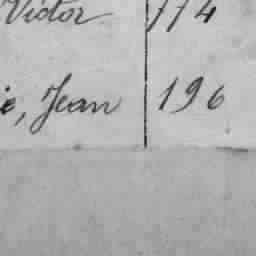 Victor 774
e, Jean 196